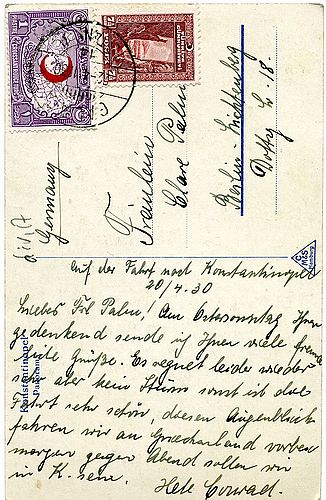 Fräulein
Clare Palm
Berlin-Lichtenberg
Dottistr. 18.
Germany
Konstantinopel
Panorama
Auf der Fahrt nach Konstantinopel
20/4.30
Liebes Frl Palm! Am Ostersonntag Ihrer
gedenkend sende ich Ihnen viele
Grüße. Es regnet leider wieder
aber kein Sturm sonst ist die
Fahrt sehr schön, diesen Augenblick
fahren wir an Griechenland vorbei
morgen gegen Abend sollen wir
in K. sein. Hete Conrad.